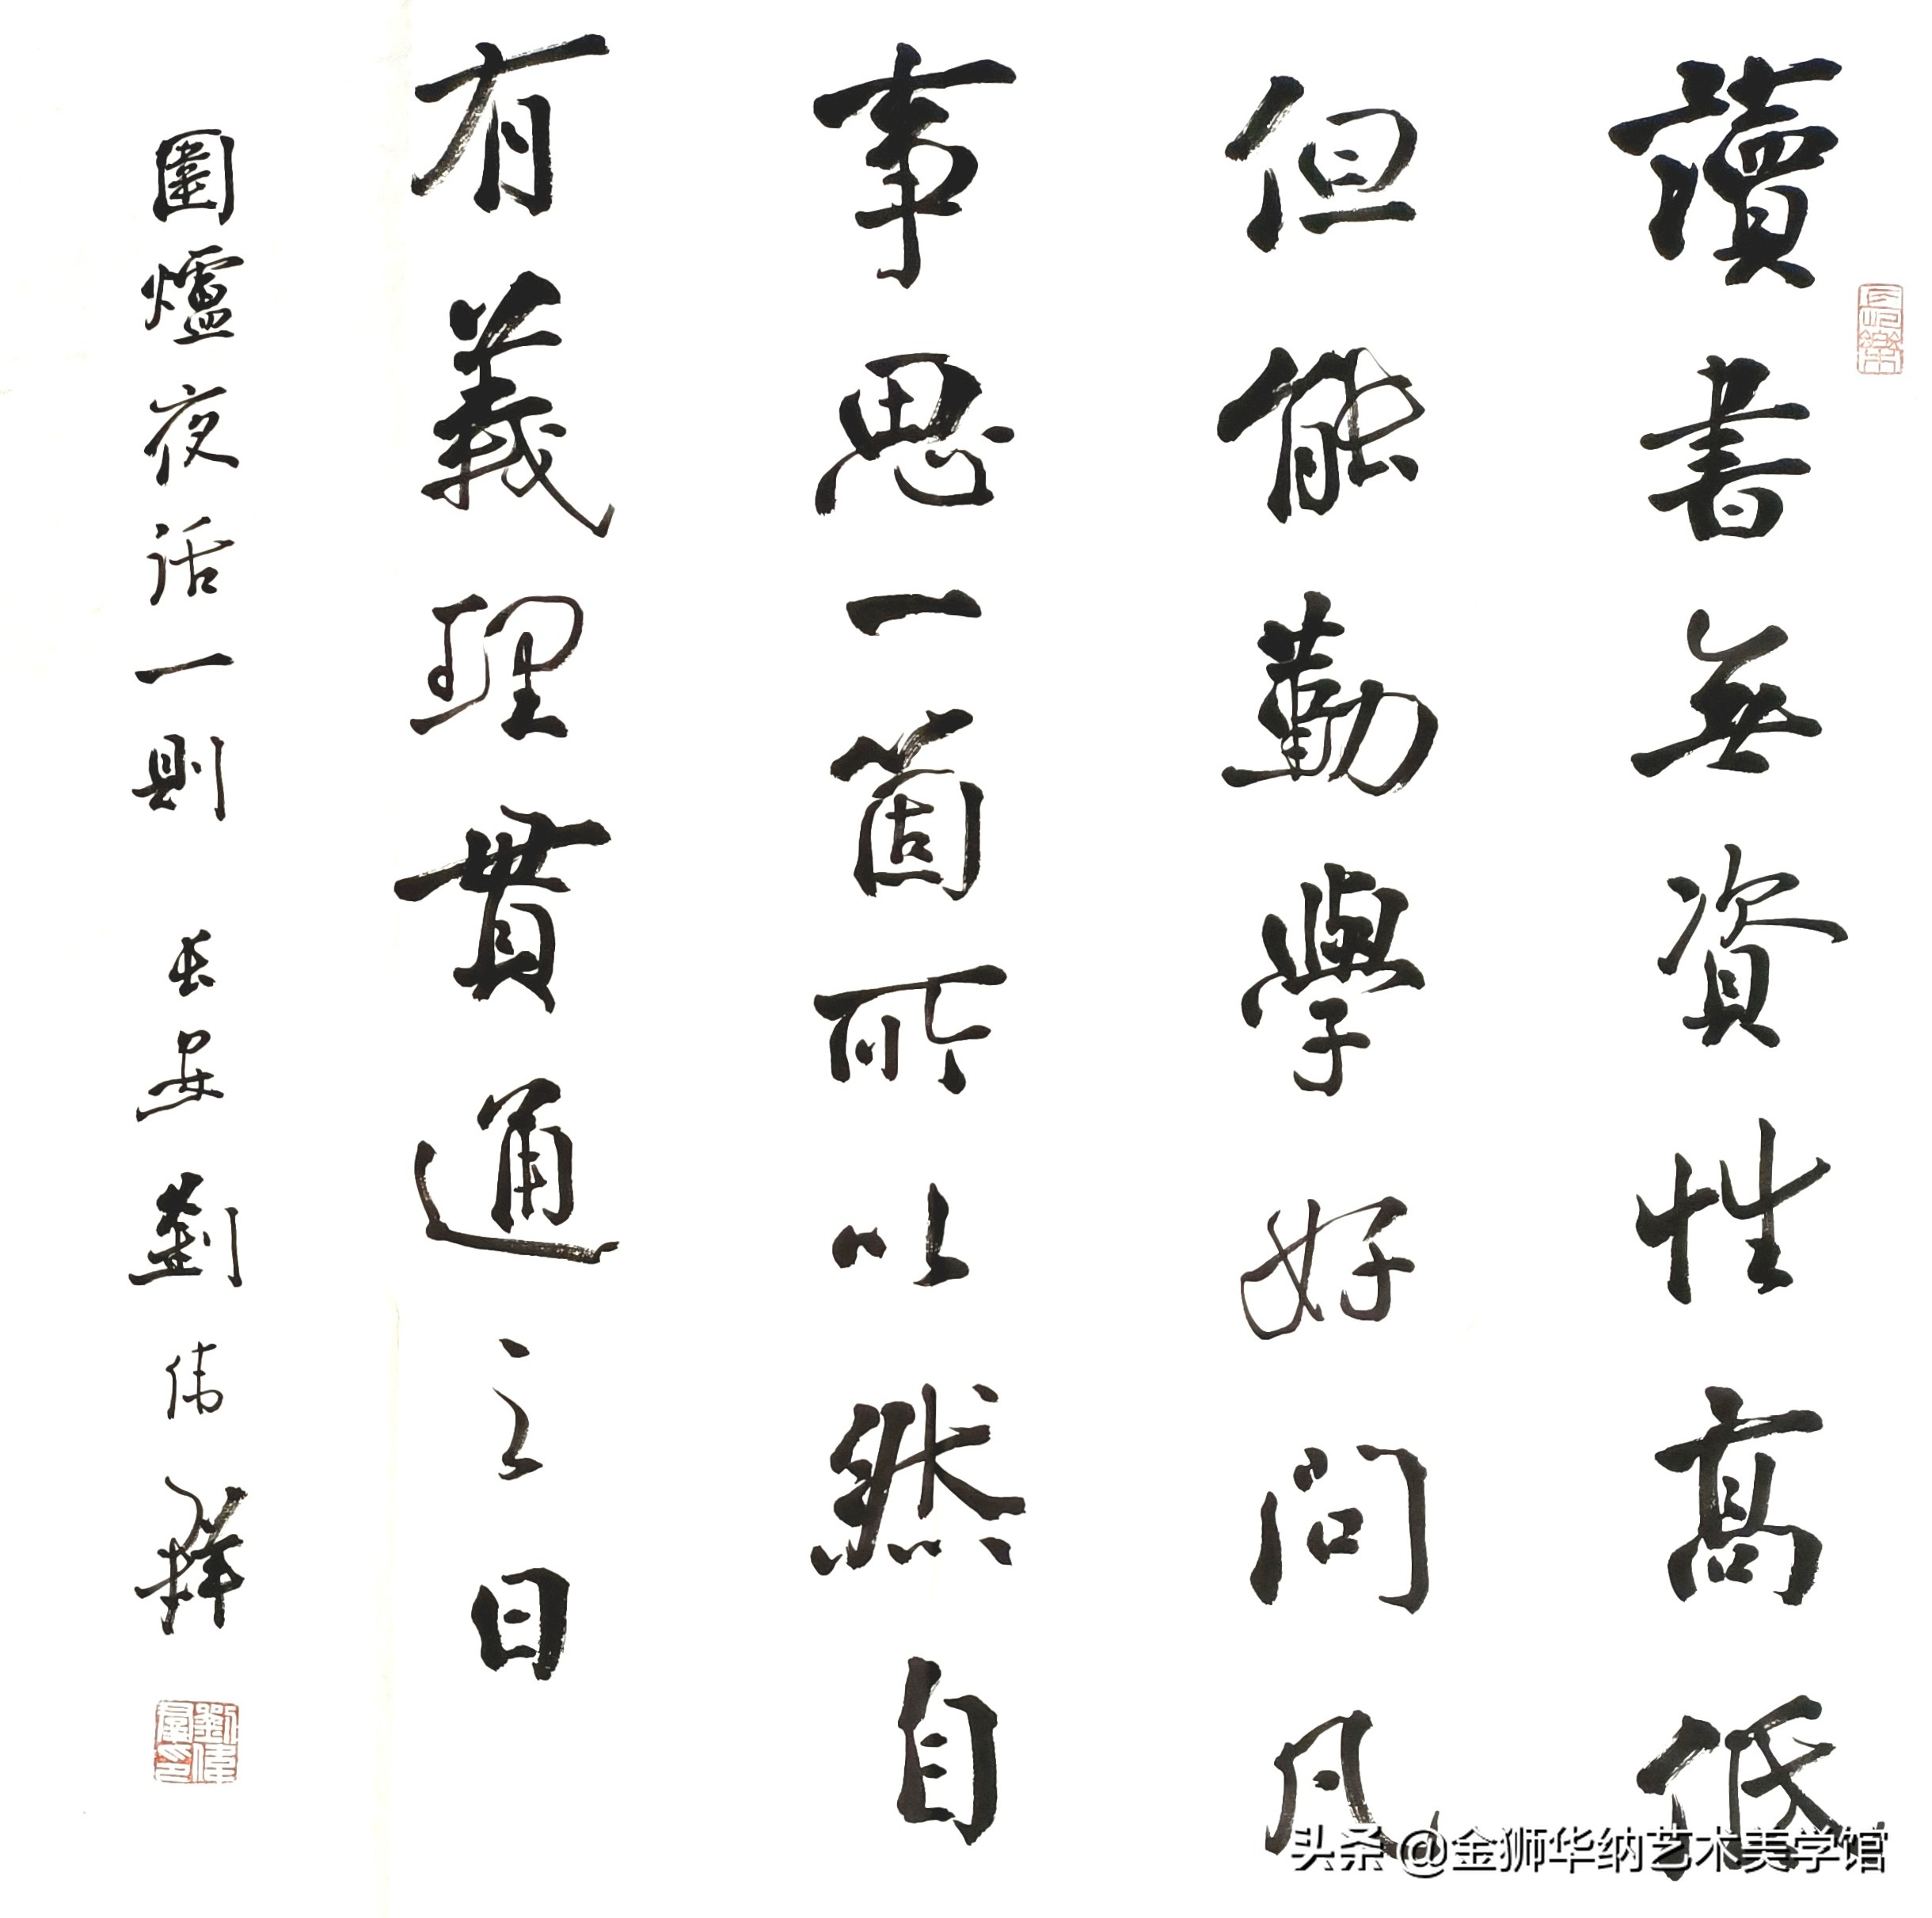 讀書無資性高低
但能勤學好問凡
事思一箇所以然自
有義理貫通之日
圍爐夜話一則 長安劉伟祥
头条 @金狮华纳艺术美学馆